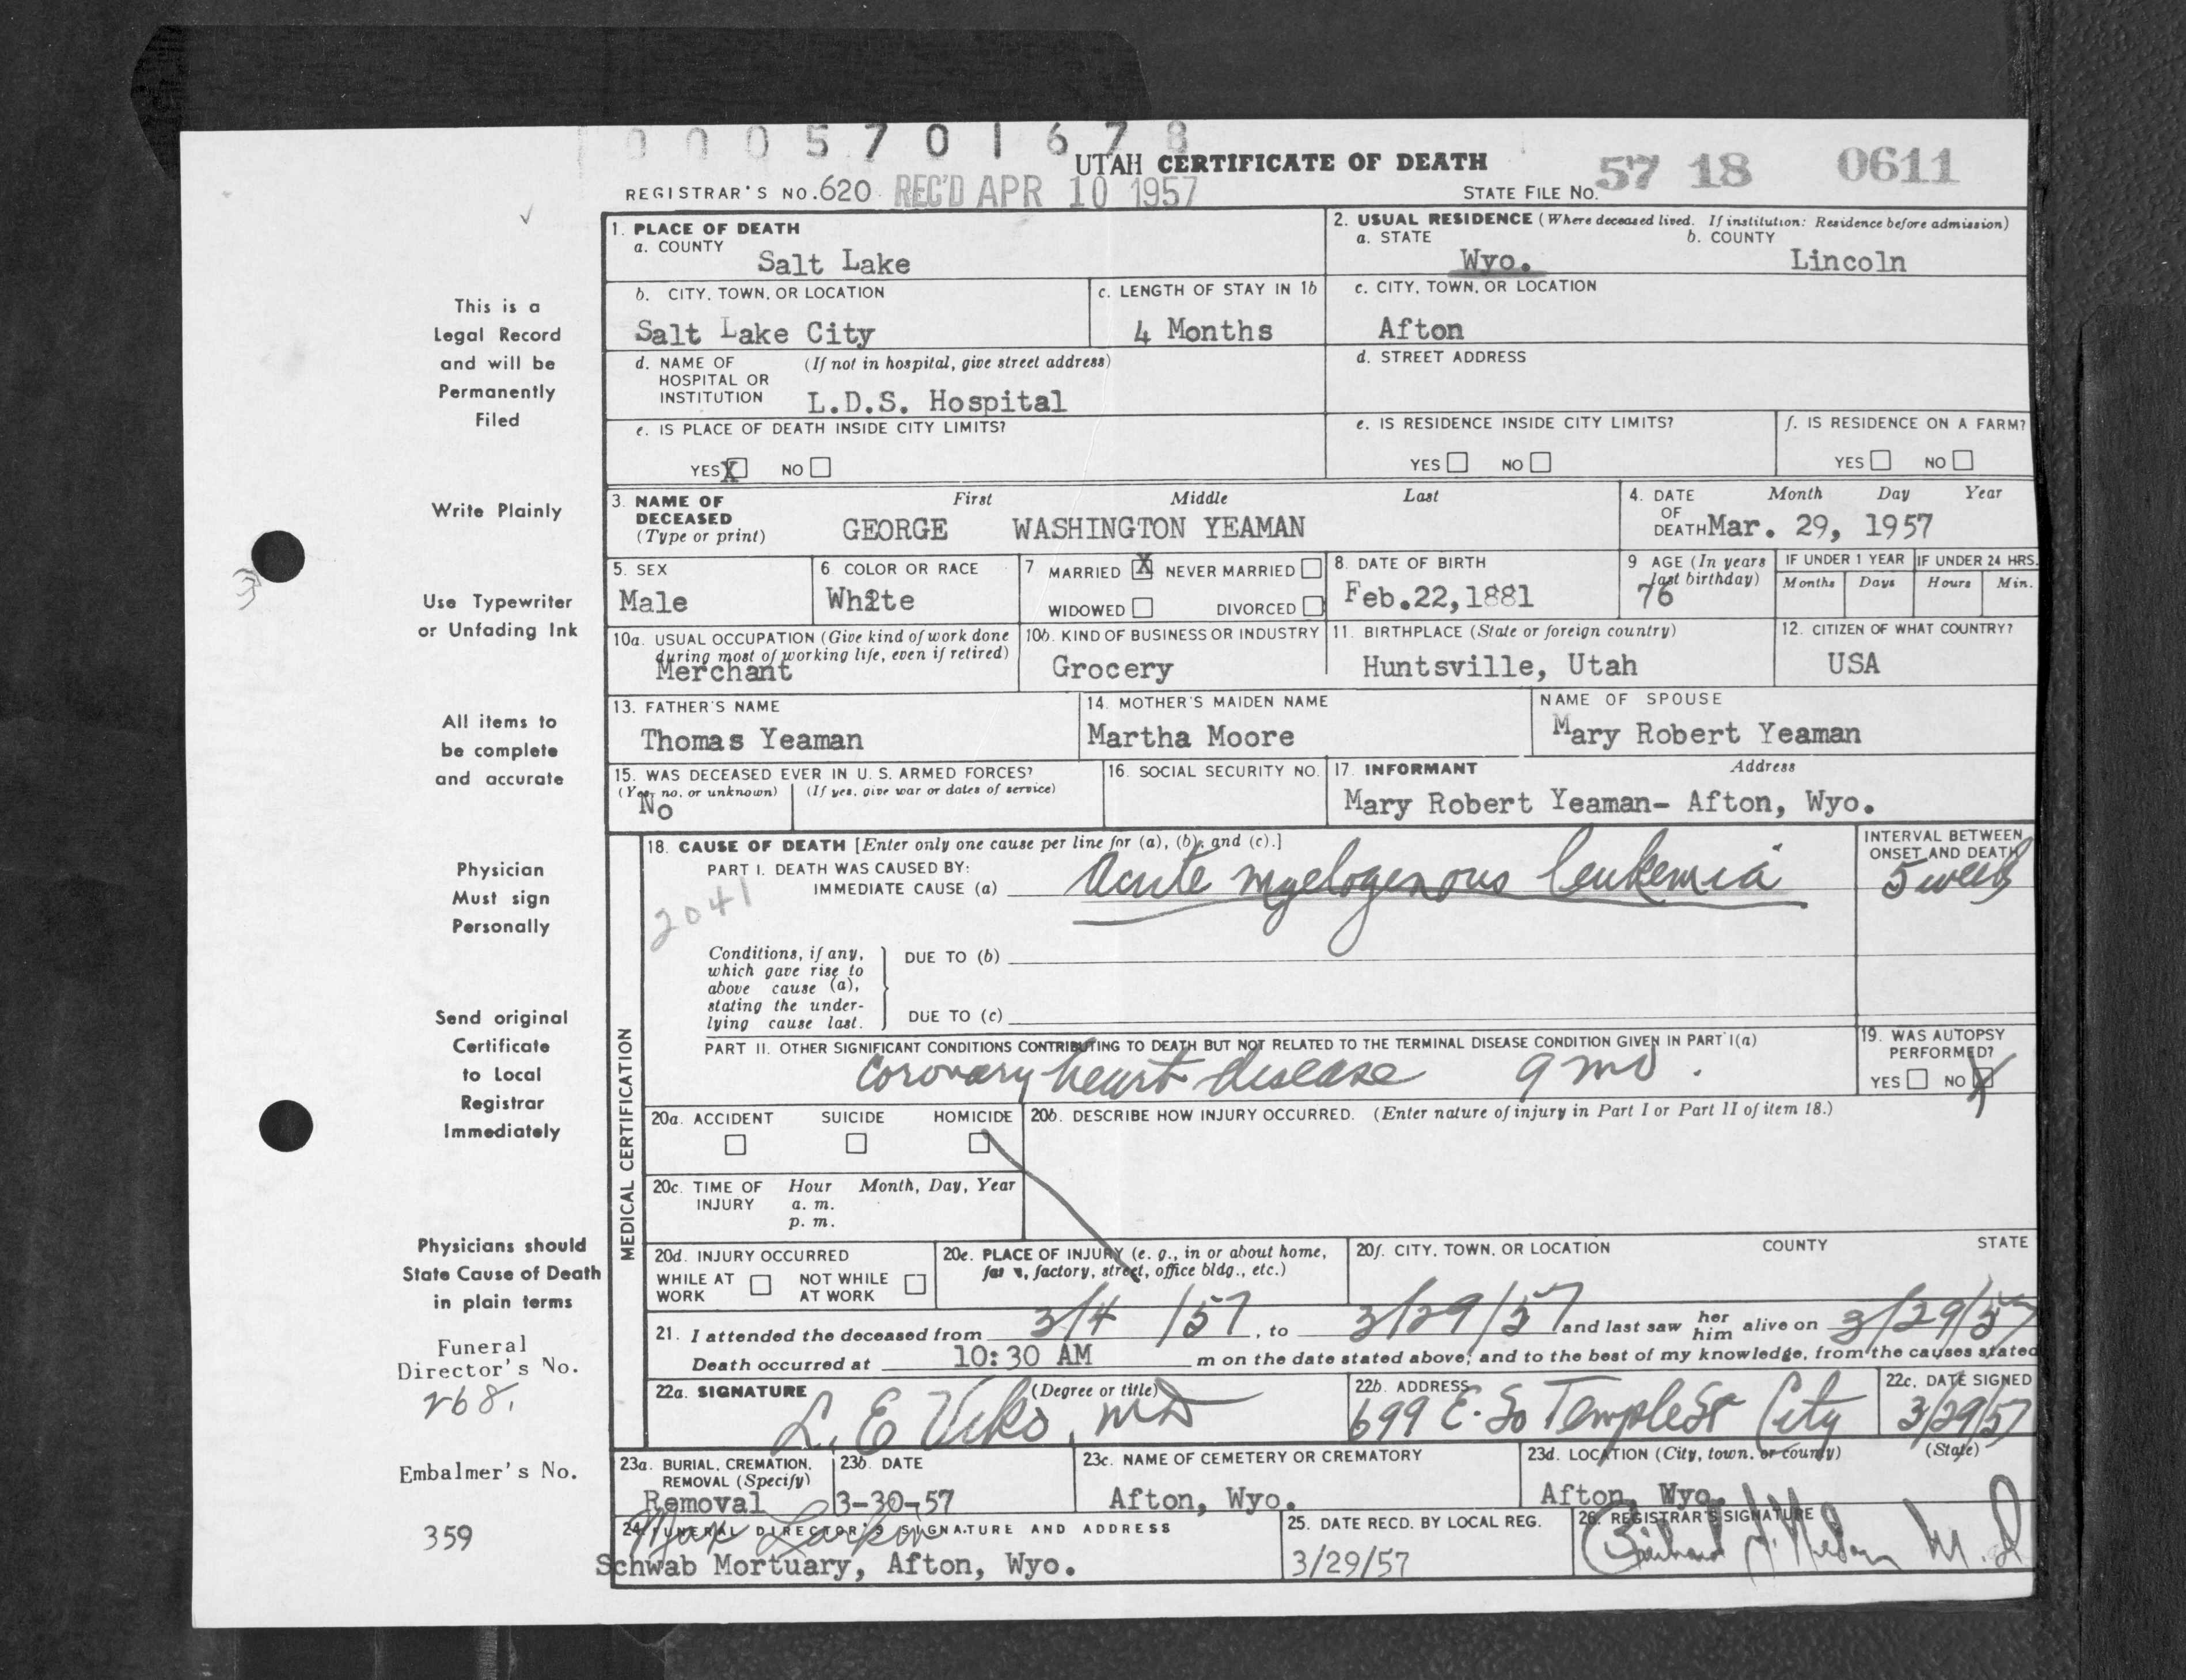 0005701678
UTAH CERTIFICATE OF DEATH
57 18 0611
REGISTRAR'S NO. 620 REC'D APR 10 1957 STATE FILE NO.
1. PLACE OF DEATH
a. COUNTY
Salt Lake
2. USUAL RESIDENCE (Where deceased lived. If institution: Residence before admission)
a. STATE b. COUNTY
Wyo. Lincoln
b. CITY, TOWN, OR LOCATION
Salt Lake City
c. LENGTH OF STAY IN 1b
4 Months
c. CITY, TOWN, OR LOCATION
Afton
d. NAME OF (If not in hospital, give street address)
HOSPITAL OR
INSTITUTION L.D.S. Hospital
d. STREET ADDRESS
e. IS PLACE OF DEATH INSIDE CITY LIMITS?
YES X NO
e. IS RESIDENCE INSIDE CITY LIMITS?
YES NO
f. IS RESIDENCE ON A FARM?
YES NO
3. NAME OF DECEASED (Type or print)
First Middle Last
GEORGE WASHINGTON YEAMAN
4. DATE OF DEATH
Month Day Year
Mar. 29, 1957
5. SEX
Male
6. COLOR OR RACE
White
7 MARRIED X NEVER MARRIED
WIDOWED DIVORCED
8. DATE OF BIRTH
Feb.22,1881
9 AGE (In years last birthday)
76
IF UNDER 1 YEAR
Months Days
IF UNDER 24 HRS.
Hours Min.
10a. USUAL OCCUPATION (Give kind of work done
during most of working life, even if retired)
Merchant
10b. KIND OF BUSINESS OR INDUSTRY
Grocery
11. BIRTHPLACE (State or foreign country)
Huntsville, Utah
12. CITIZEN OF WHAT COUNTRY?
USA
13. FATHER'S NAME
Thomas Yeaman
14. MOTHER'S MAIDEN NAME
Martha Moore
NAME OF SPOUSE
Mary Robert Yeaman
15. WAS DECEASED EVER IN U. S. ARMED FORCES?
(Yes, no, or unknown) (If yes, give war or dates of service)
No
16. SOCIAL SECURITY NO.
17. INFORMANT Address
Mary Robert Yeaman- Afton, Wyo.
MEDICAL CERTIFICATION
18. CAUSE OF DEATH [Enter only one cause per line for (a), (b), and (c).]
PART I. DEATH WAS CAUSED BY:
IMMEDIATE CAUSE (a) Acute myelogenous leukemia
2041
INTERVAL BETWEEN
ONSET AND DEATH
5 weeks
Conditions, if any,
which gave rise to
above cause (a),
stating the under-
lying cause last.
DUE TO (b)
DUE TO (c)
PART II. OTHER SIGNIFICANT CONDITIONS CONTRIBUTING TO DEATH BUT NOT RELATED TO THE TERMINAL DISEASE CONDITION GIVEN IN PART I(a)
Coronary heart disease 9 mo.
19. WAS AUTOPSY
PERFORMED?
YES NO X
20a. ACCIDENT SUICIDE HOMICIDE
20b. DESCRIBE HOW INJURY OCCURRED. (Enter nature of injury in Part I or Part II of item 18.)
20c. TIME OF INJURY
Hour Month, Day, Year
a. m.
p. m.
20d. INJURY OCCURRED
WHILE AT WORK NOT WHILE AT WORK
20e. PLACE OF INJURY (e. g., in or about home,
farm, factory, street, office bldg., etc.)
20f. CITY, TOWN, OR LOCATION COUNTY STATE
21. I attended the deceased from 3/4/57, to 3/29/57 and last saw her him alive on 3/29/57
Death occurred at 10:30 AM m on the date stated above; and to the best of my knowledge, from the causes stated
22a. SIGNATURE (Degree or title)
L. E Viko, MD
22b. ADDRESS
699 E. So Temple St City
22c. DATE SIGNED
3/29/57
23a. BURIAL, CREMATION,
REMOVAL (Specify)
Removal
23b. DATE
3-30-57
23c. NAME OF CEMETERY OR CREMATORY
Afton, Wyo.
23d. LOCATION (City, town, or county) (State)
Afton, Wyo.
24. FUNERAL DIRECTOR'S SIGNATURE AND ADDRESS
Max Larkin
Schwab Mortuary, Afton, Wyo.
25. DATE RECD. BY LOCAL REG.
3/29/57
26. REGISTRAR'S SIGNATURE
M. D
This is a
Legal Record
and will be
Permanently
Filed
Write Plainly
Use Typewriter
or Unfading Ink
All items to
be complete
and accurate
Physician
Must sign
Personally
Send original
Certificate
to Local
Registrar
Immediately
Physicians should
State Cause of Death
in plain terms
Funeral
Director's No.
268.
Embalmer's No.
359